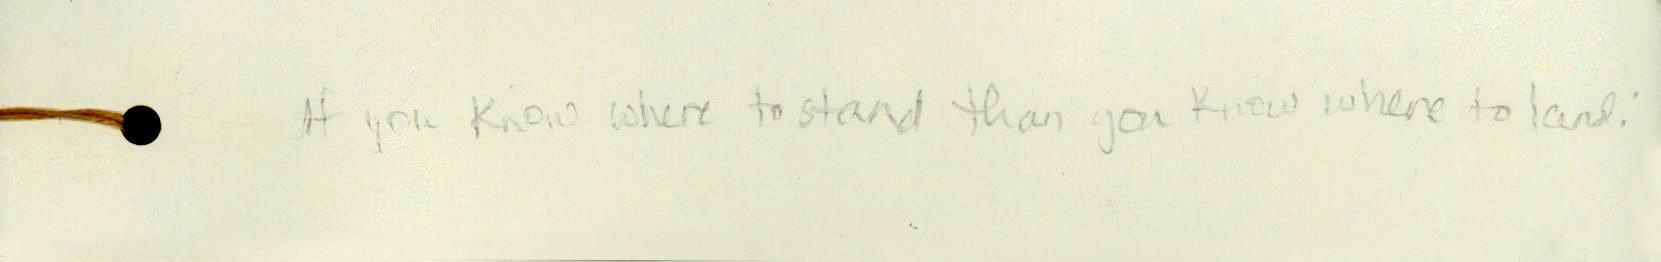 If you know where to stand than you know where to land.